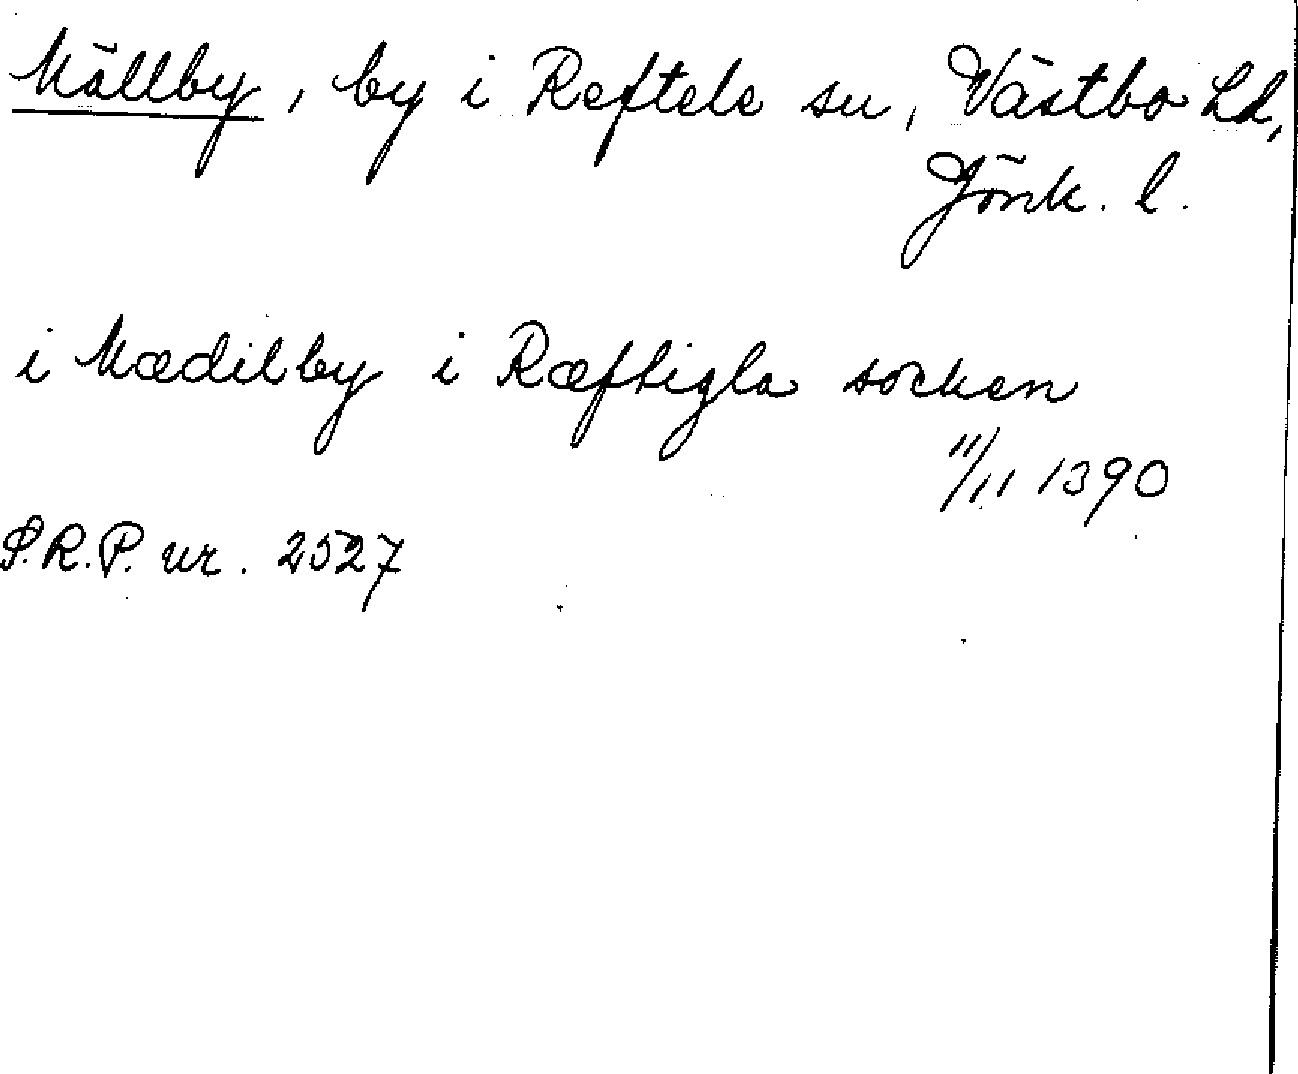 Källby, by i Reftele sn, Västbo hd,
Jönk. l.
i Kædilby i Ræftigla socken
11/11 1390
S.R.P. nr. 2527